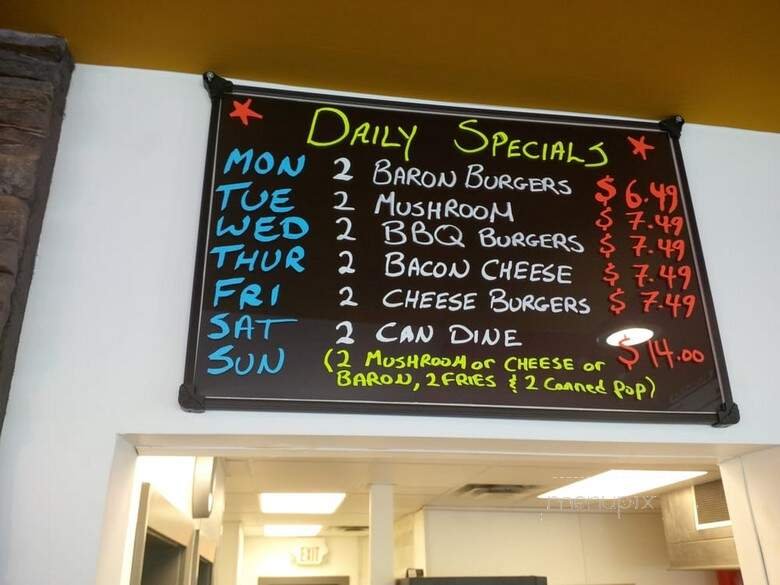 DAILY SPECIALS
MON 2 BARON BURGERS $6.49
TUE 2 MUSHROOM $7.49
WED 2 BBQ BURGERS $7.49
THUR 2 BACON CHEESE $7.49
FRI 2 CHEESE BURGERS $7.49
SAT 2 CAN DINE $14.00
SUN (2 MUSHROOM or CHEESE or
BARON, 2 FRIES & 2 Canned Pop)
menupix
EXIT